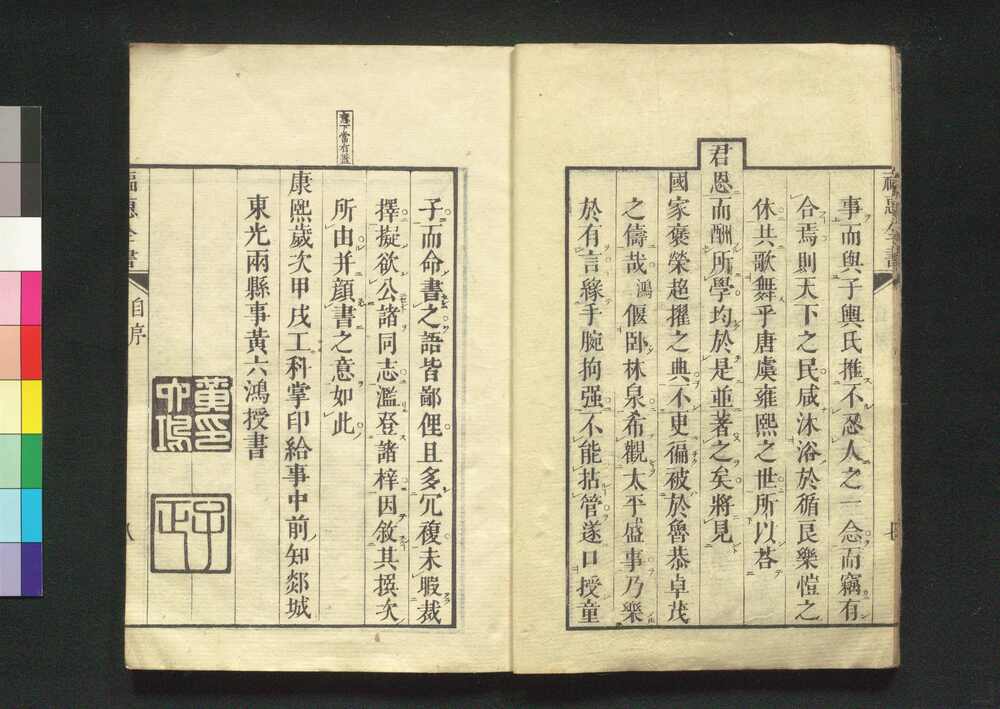 事而與子輿氏推不忍人之一念而竊有
合焉則天下之民咸沐浴於循良樂愷之
休共歌舞乎唐虞雍熙之世所以荅
君恩而酬所學均於是並著之矣將見
國家褒榮超擢之典不更徧被於魯恭卓茂
之儔哉鴻偃臥林泉希觀太平盛事乃樂
於有言緣手腕拘强不能拈管遂口授童
子而命書之語皆鄙俚且多冗複未暇裁
擇擬欲公諸同志濫登諸梓因敘其撰次
所由并顔書之意如此
康熙歲次甲戌工科掌印給事中前知郯城
東光兩縣事黃六鴻授書
黃印六鴻
子正
福惠全書
自序
八
下當有蓋